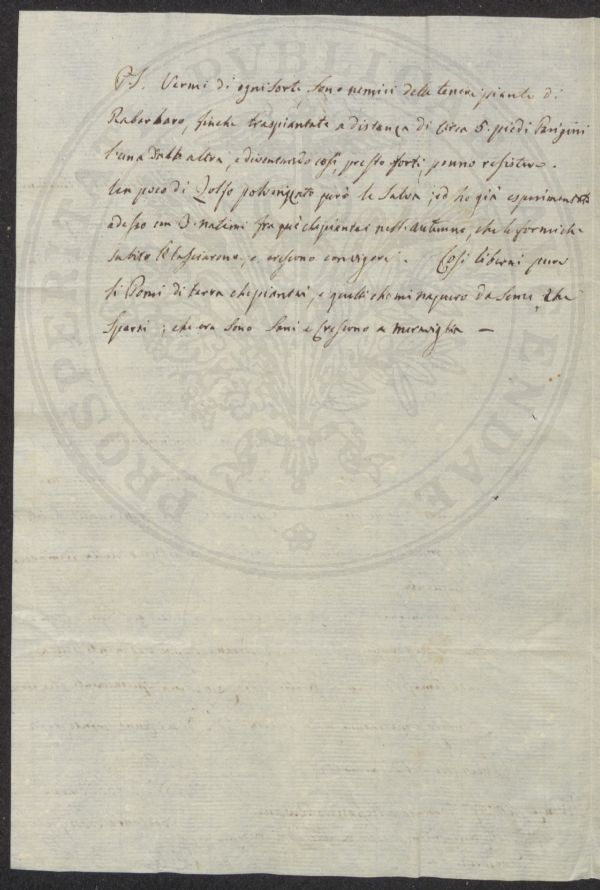 P.S. Vermi di ogni sorte, sono nemici delle tenere piante di
Rabarbaro, finche traspiantate a distanza di circa 5. piedi Parigini
l'una dall'altra, e diventando così presto forti, ponno resistere.
Un poco di Zolfo polverizzato però le salva; ed ho già esperimentato
adesso con 3. natemi fra più che piantai nell'autunno, che le formiche
subito le lasciarono, e crescono con vigore. Così liberai pure
li Pomi di terra che piantai, e quelli che mi naquero da seme che
sparsi; che ora sono sani e crescono a meraviglia —
PUBLIC
PROSPERITATI
ENDAE